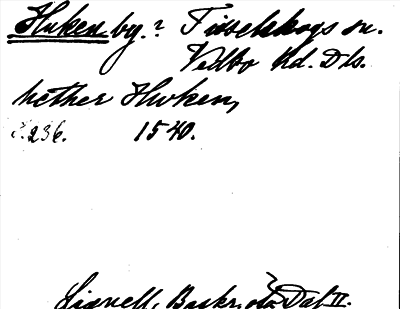 Huken by.? Tisselskogs sn.
Vedbo hd. Dls.
nether Hwken,
s. 236. 1540.
Lignell, Beskr. ö. Dal II.